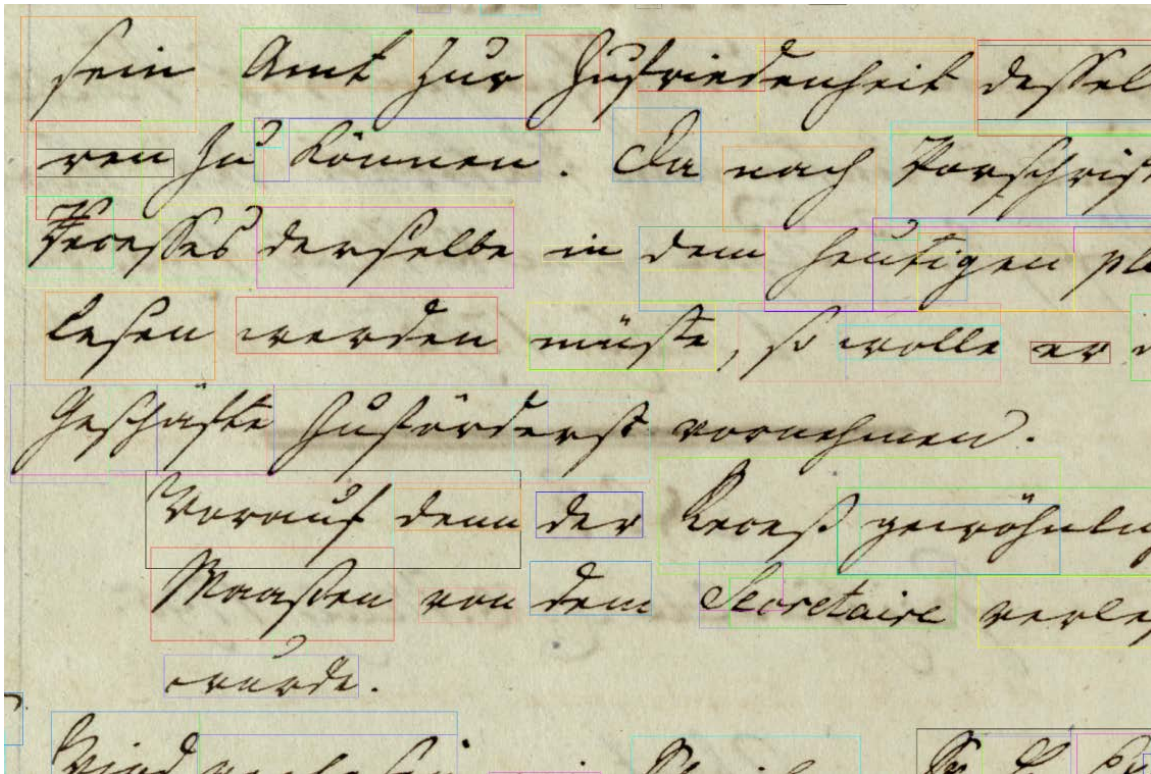 sein Amt zur Zufriedenheit dessel
ren zu können. Da nach Vorschrift
Recesses derselbe in dem heutigen
lesen werden müste, so wolle er
Geschäfte zuförderst vornehmen.
Worauf denn der Receß gewöhnlich
Maaßen von dem Secretaire verle
wurde.